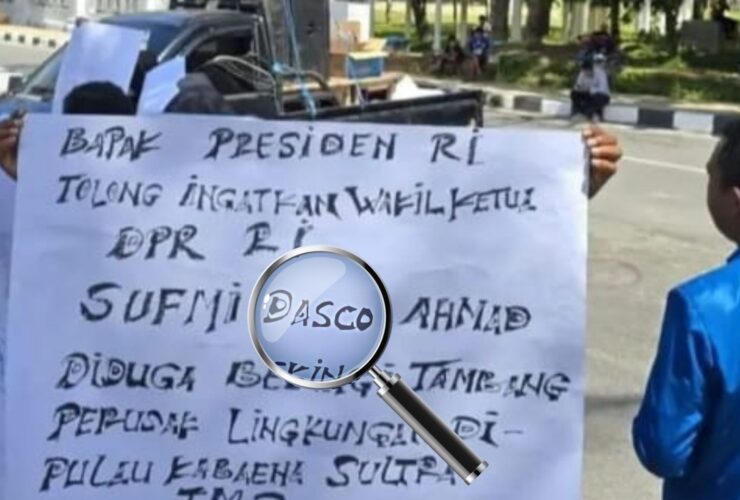 BAPAK PRESIDEN RI
TOLONG INGATKAN WAKIL KETUA
DPR RI
SUFMI DASCO AHMAD
DIDUGA BEKINGI TAMBANG
PERUSAK LINGKUNGAN DI-
PULAU KABAENA SULTRA